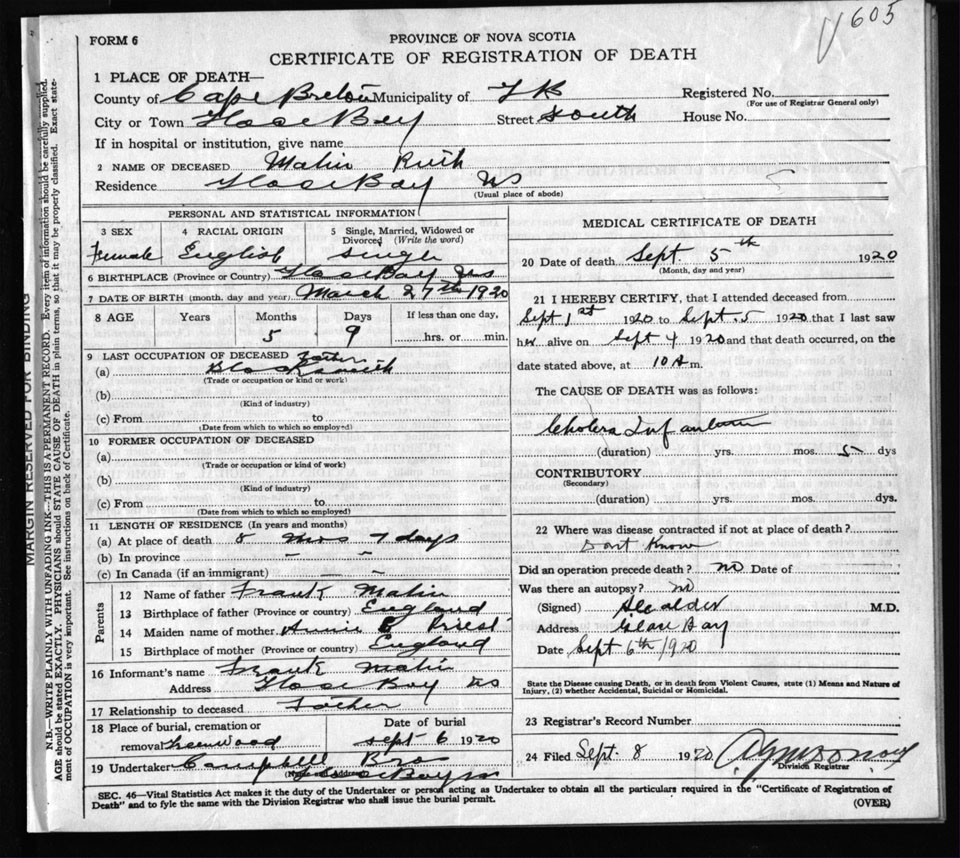 605
FORM 6
PROVINCE OF NOVA SCOTIA
CERTIFICATE OF REGISTRATION OF DEATH
1 PLACE OF DEATH—
County of Cape Breton Municipality of Registered No.
(For use of Registrar General only)
City or Town Glace Bay Street South House No.
If in hospital or institution, give name
2 NAME OF DECEASED Ruth
Residence Glace Bay NS
(Usual place of abode)
PERSONAL AND STATISTICAL INFORMATION
3 SEX 4 RACIAL ORIGIN 5 Single, Married, Widowed or Divorced (Write the word)
Female English single
6 BIRTHPLACE (Province or Country) Glace Bay NS
7 DATE OF BIRTH (month, day and year) March 27th 1920
8 AGE Years Months Days If less than one day,
5 9 hrs. or min.
9 LAST OCCUPATION OF DECEASED Father
(a) Blacksmith
(Trade or occupation or kind or work)
(b)
(Kind of industry)
(c) From to
(Date from which to which so employed)
10 FORMER OCCUPATION OF DECEASED
(a)
(Trade or occupation or kind of work)
(b)
(Kind of industry)
(c) From to
(Date from which to which so employed)
11 LENGTH OF RESIDENCE (In years and months)
(a) At place of death 8 mos 7 days
(b) In province – –
(c) In Canada (if an immigrant) – –
Parents
12 Name of father Frank
13 Birthplace of father (Province or country) England
14 Maiden name of mother Annie Priest
15 Birthplace of mother (Province or country) England
16 Informant's name Frank
Address Glace Bay NS
17 Relationship to deceased Father
18 Place of burial, cremation or Date of burial
removal Greenwood Sept 6 1920
19 Undertaker Campbell Bros
(Name and Address) Glace Bay NS
MEDICAL CERTIFICATE OF DEATH
20 Date of death Sept. 5th 1920
(Month, day and year)
21 I HEREBY CERTIFY, that I attended deceased from
Sept 1st 1920 to Sept. 5 1920 that I last saw
her alive on Sept 4 1920 and that death occurred, on the
date stated above, at 10 A m.
The CAUSE OF DEATH was as follows:
Cholera Infantum
(duration) yrs. mos. 5 dys
CONTRIBUTORY
(Secondary)
(duration) yrs. mos. dys.
22 Where was disease contracted if not at place of death?
Dont Know
Did an operation precede death? no Date of
Was there an autopsy? no
(Signed) M.D.
Address Glace Bay
Date Sept 6th/1920
State the Disease causing Death, or in death from Violent Causes, state (1) Means and Nature of
Injury, (2) whether Accidental, Suicidal or Homicidal.
23 Registrar's Record Number
24 Filed Sept. 8 1920
Division Registrar
SEC. 46—Vital Statistics Act makes it the duty of the Undertaker or person acting as Undertaker to obtain all the particulars required in the "Certificate of Registration of
Death" and to fyle the same with the Division Registrar who shall issue the burial permit.
(OVER)
MARGIN RESERVED FOR BINDING
N.B.—WRITE PLAINLY WITH UNFADING INK—THIS IS A PERMANENT RECORD. Every item of information should be carefully supplied.
AGE should be stated EXACTLY. PHYSICIANS should STATE CAUSE OF DEATH in plain terms, so that it may be properly classified. Exact state-
ment of OCCUPATION is very important. See instructions on back of Certificate.